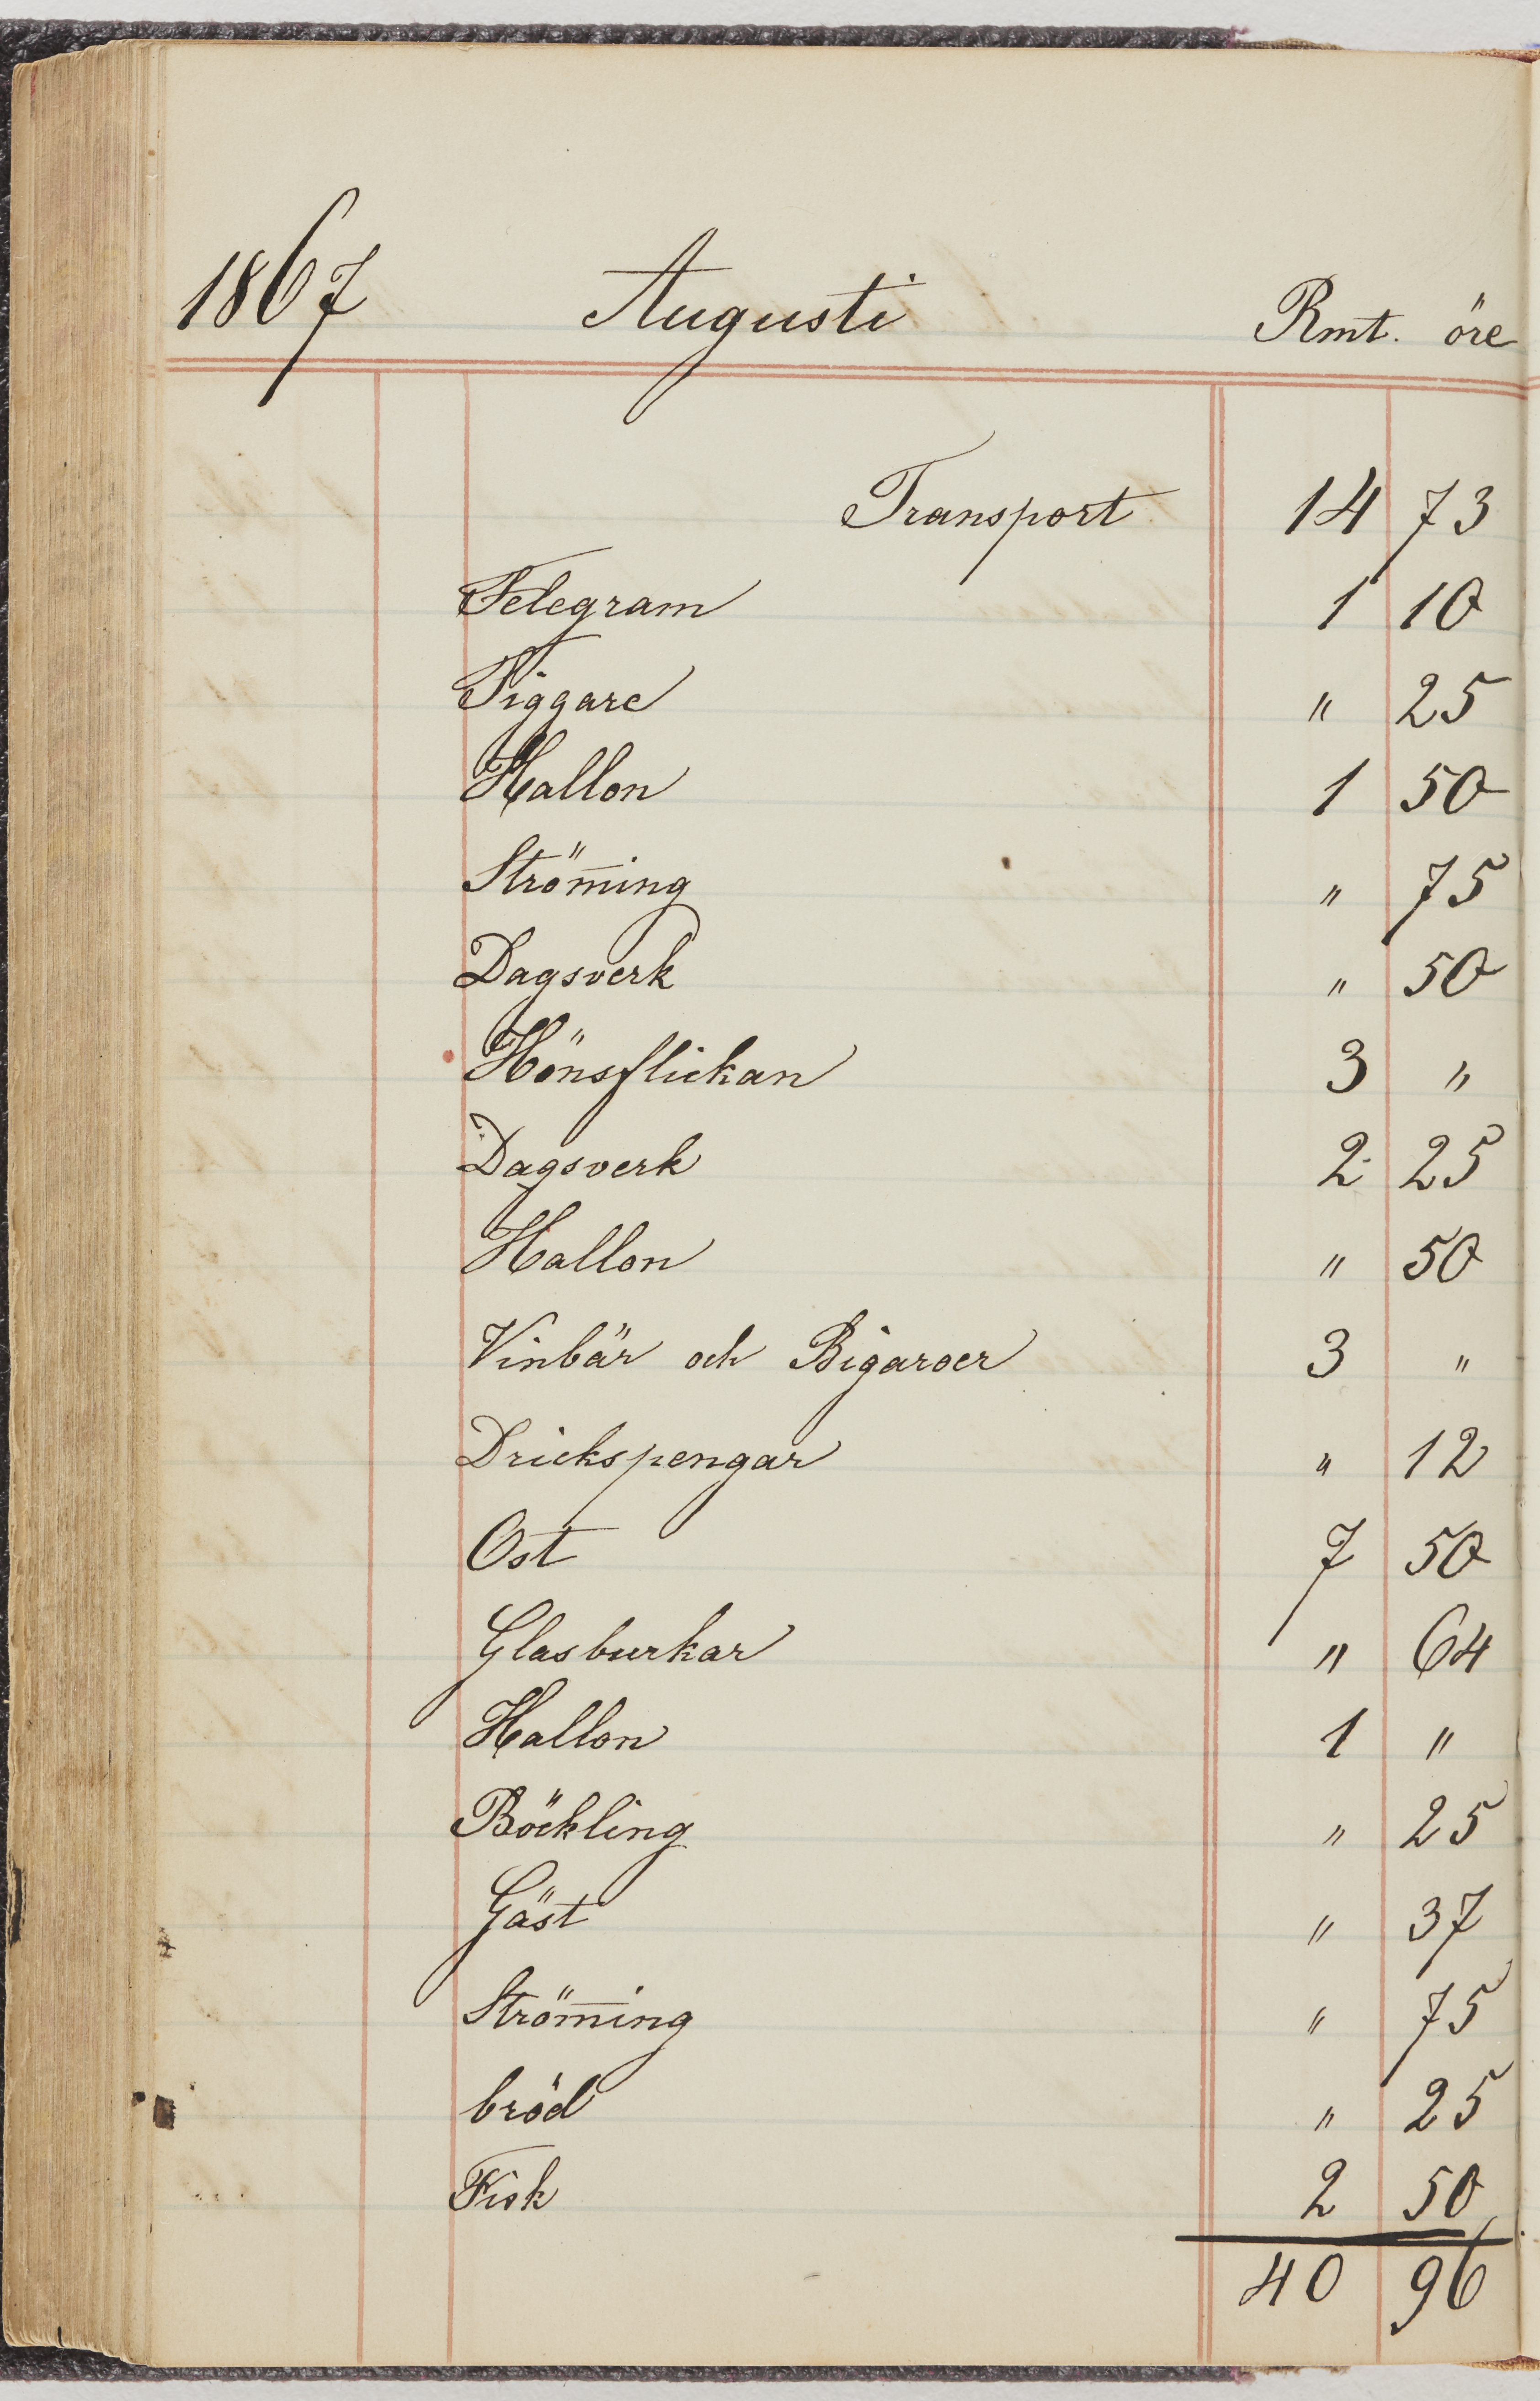 1867 Augusti Rmt. öre
Transport 14 73
Telegram 1 10
Tiggare " 25
Hallon 1 50
Ström̅ing " 75
Dagsverk " 50
Hönsflickan 3 "
Dagsverk 2 25
Hallon " 50
Vinbär och Bigaroer 3 "
Drickspengar " 12
Ost 7 50
Glasburkar " 64
Hallon 1 "
Böckling " 25
Gäst " 37
Ström̅ing " 75
bröd " 25
Fisk 2 50
40 96